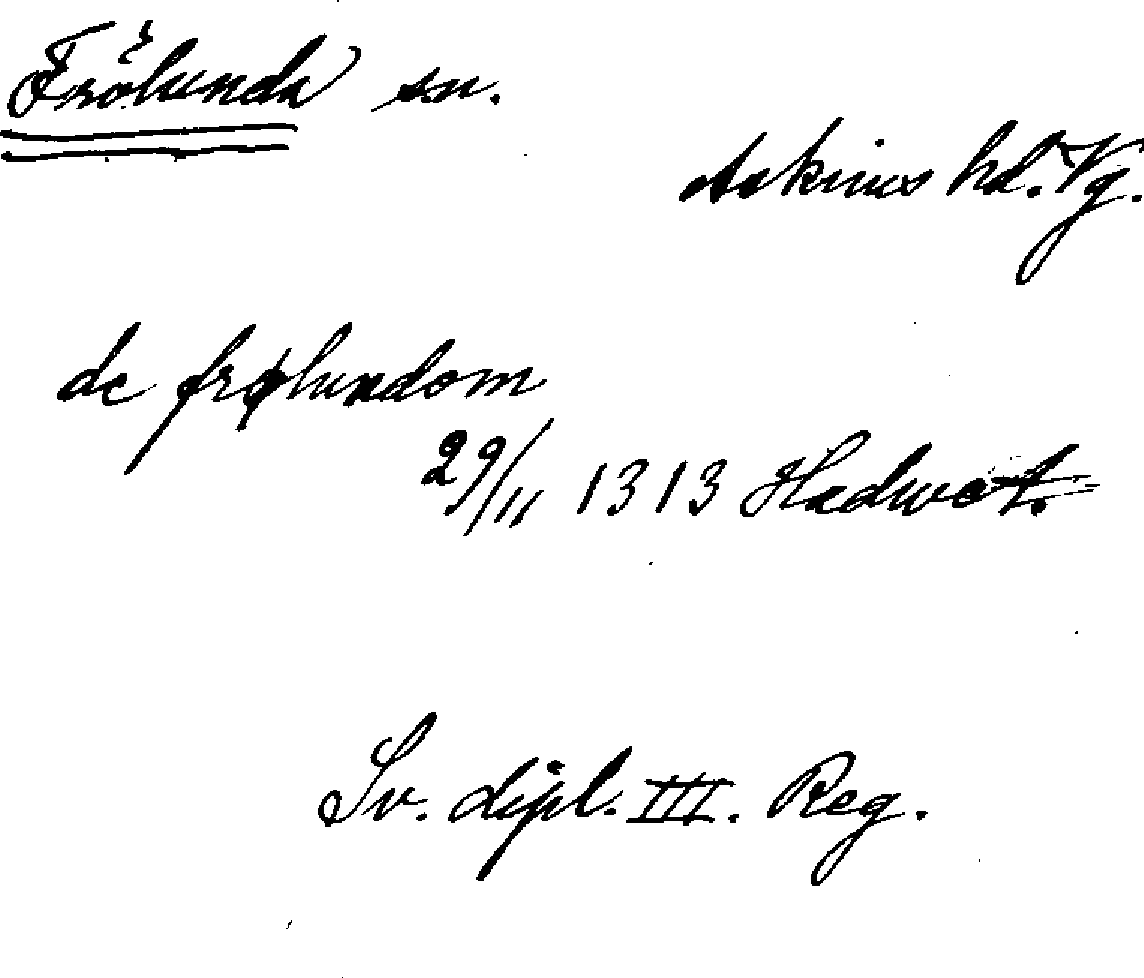 Frölunda sn.
Askims hd. Vg.
de frølundom
29/11 1313
Sv. dipl. III. Reg.